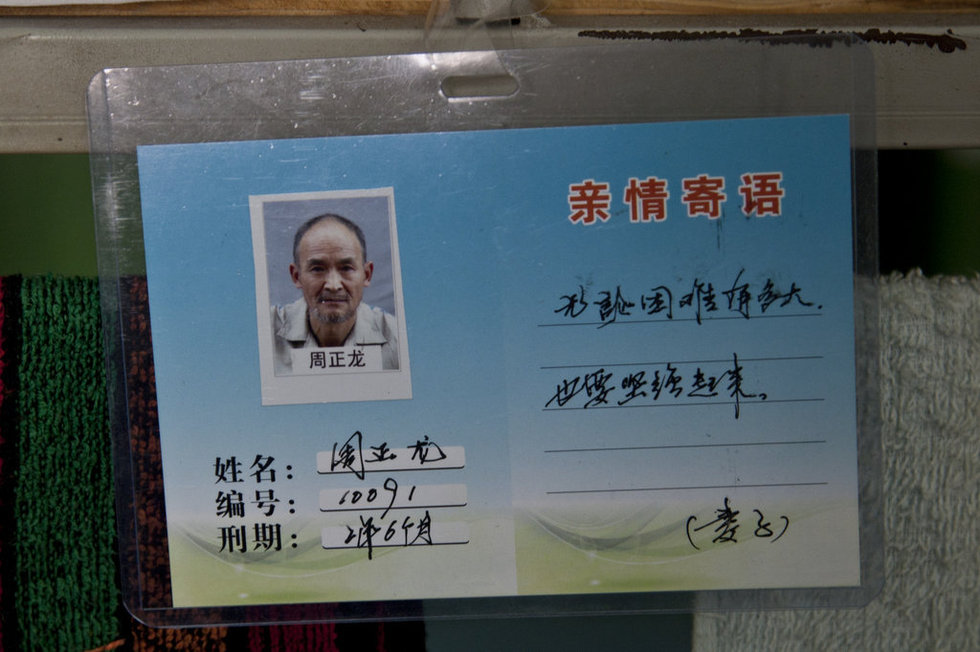 周正龙
姓名：周正龙
编号：10091
刑期：2年6个月
亲情寄语
无论困难有多大.
也要坚强起来。
(妻子)